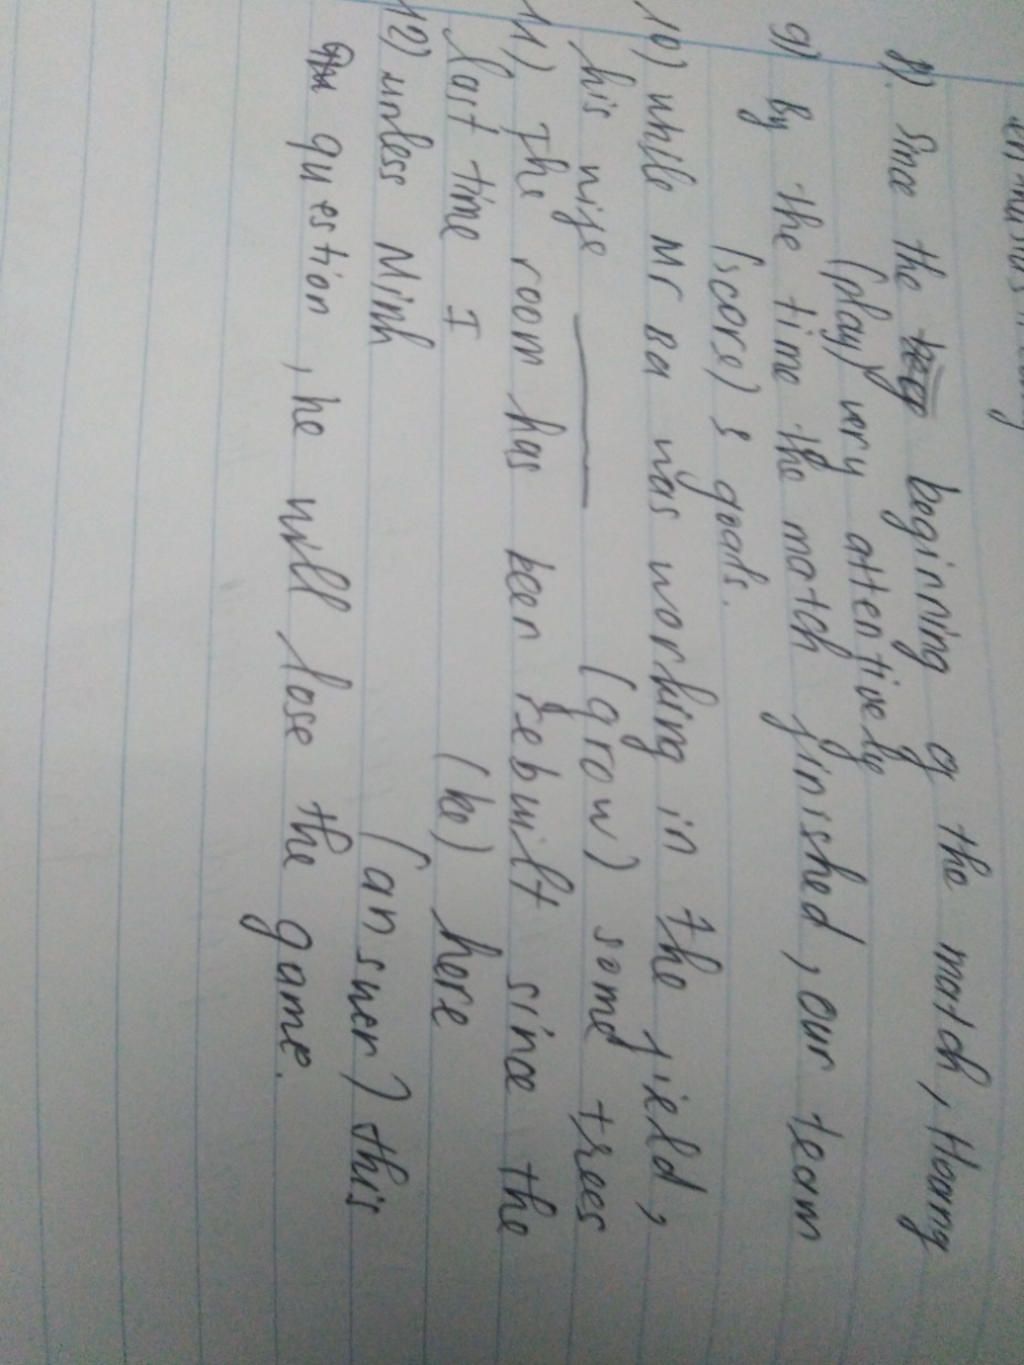 8). Since the beginning of the match, Hoang
(play) very attentively
9) By the time the match finished, our team
(score) 3 goals.
10) while Mr Ba was working in the field,
his wife ______ (grow) some trees
11) The room has been rebuilt since the
last time I (be) here
12) unless Minh (answer) this
question, he will lose the game.